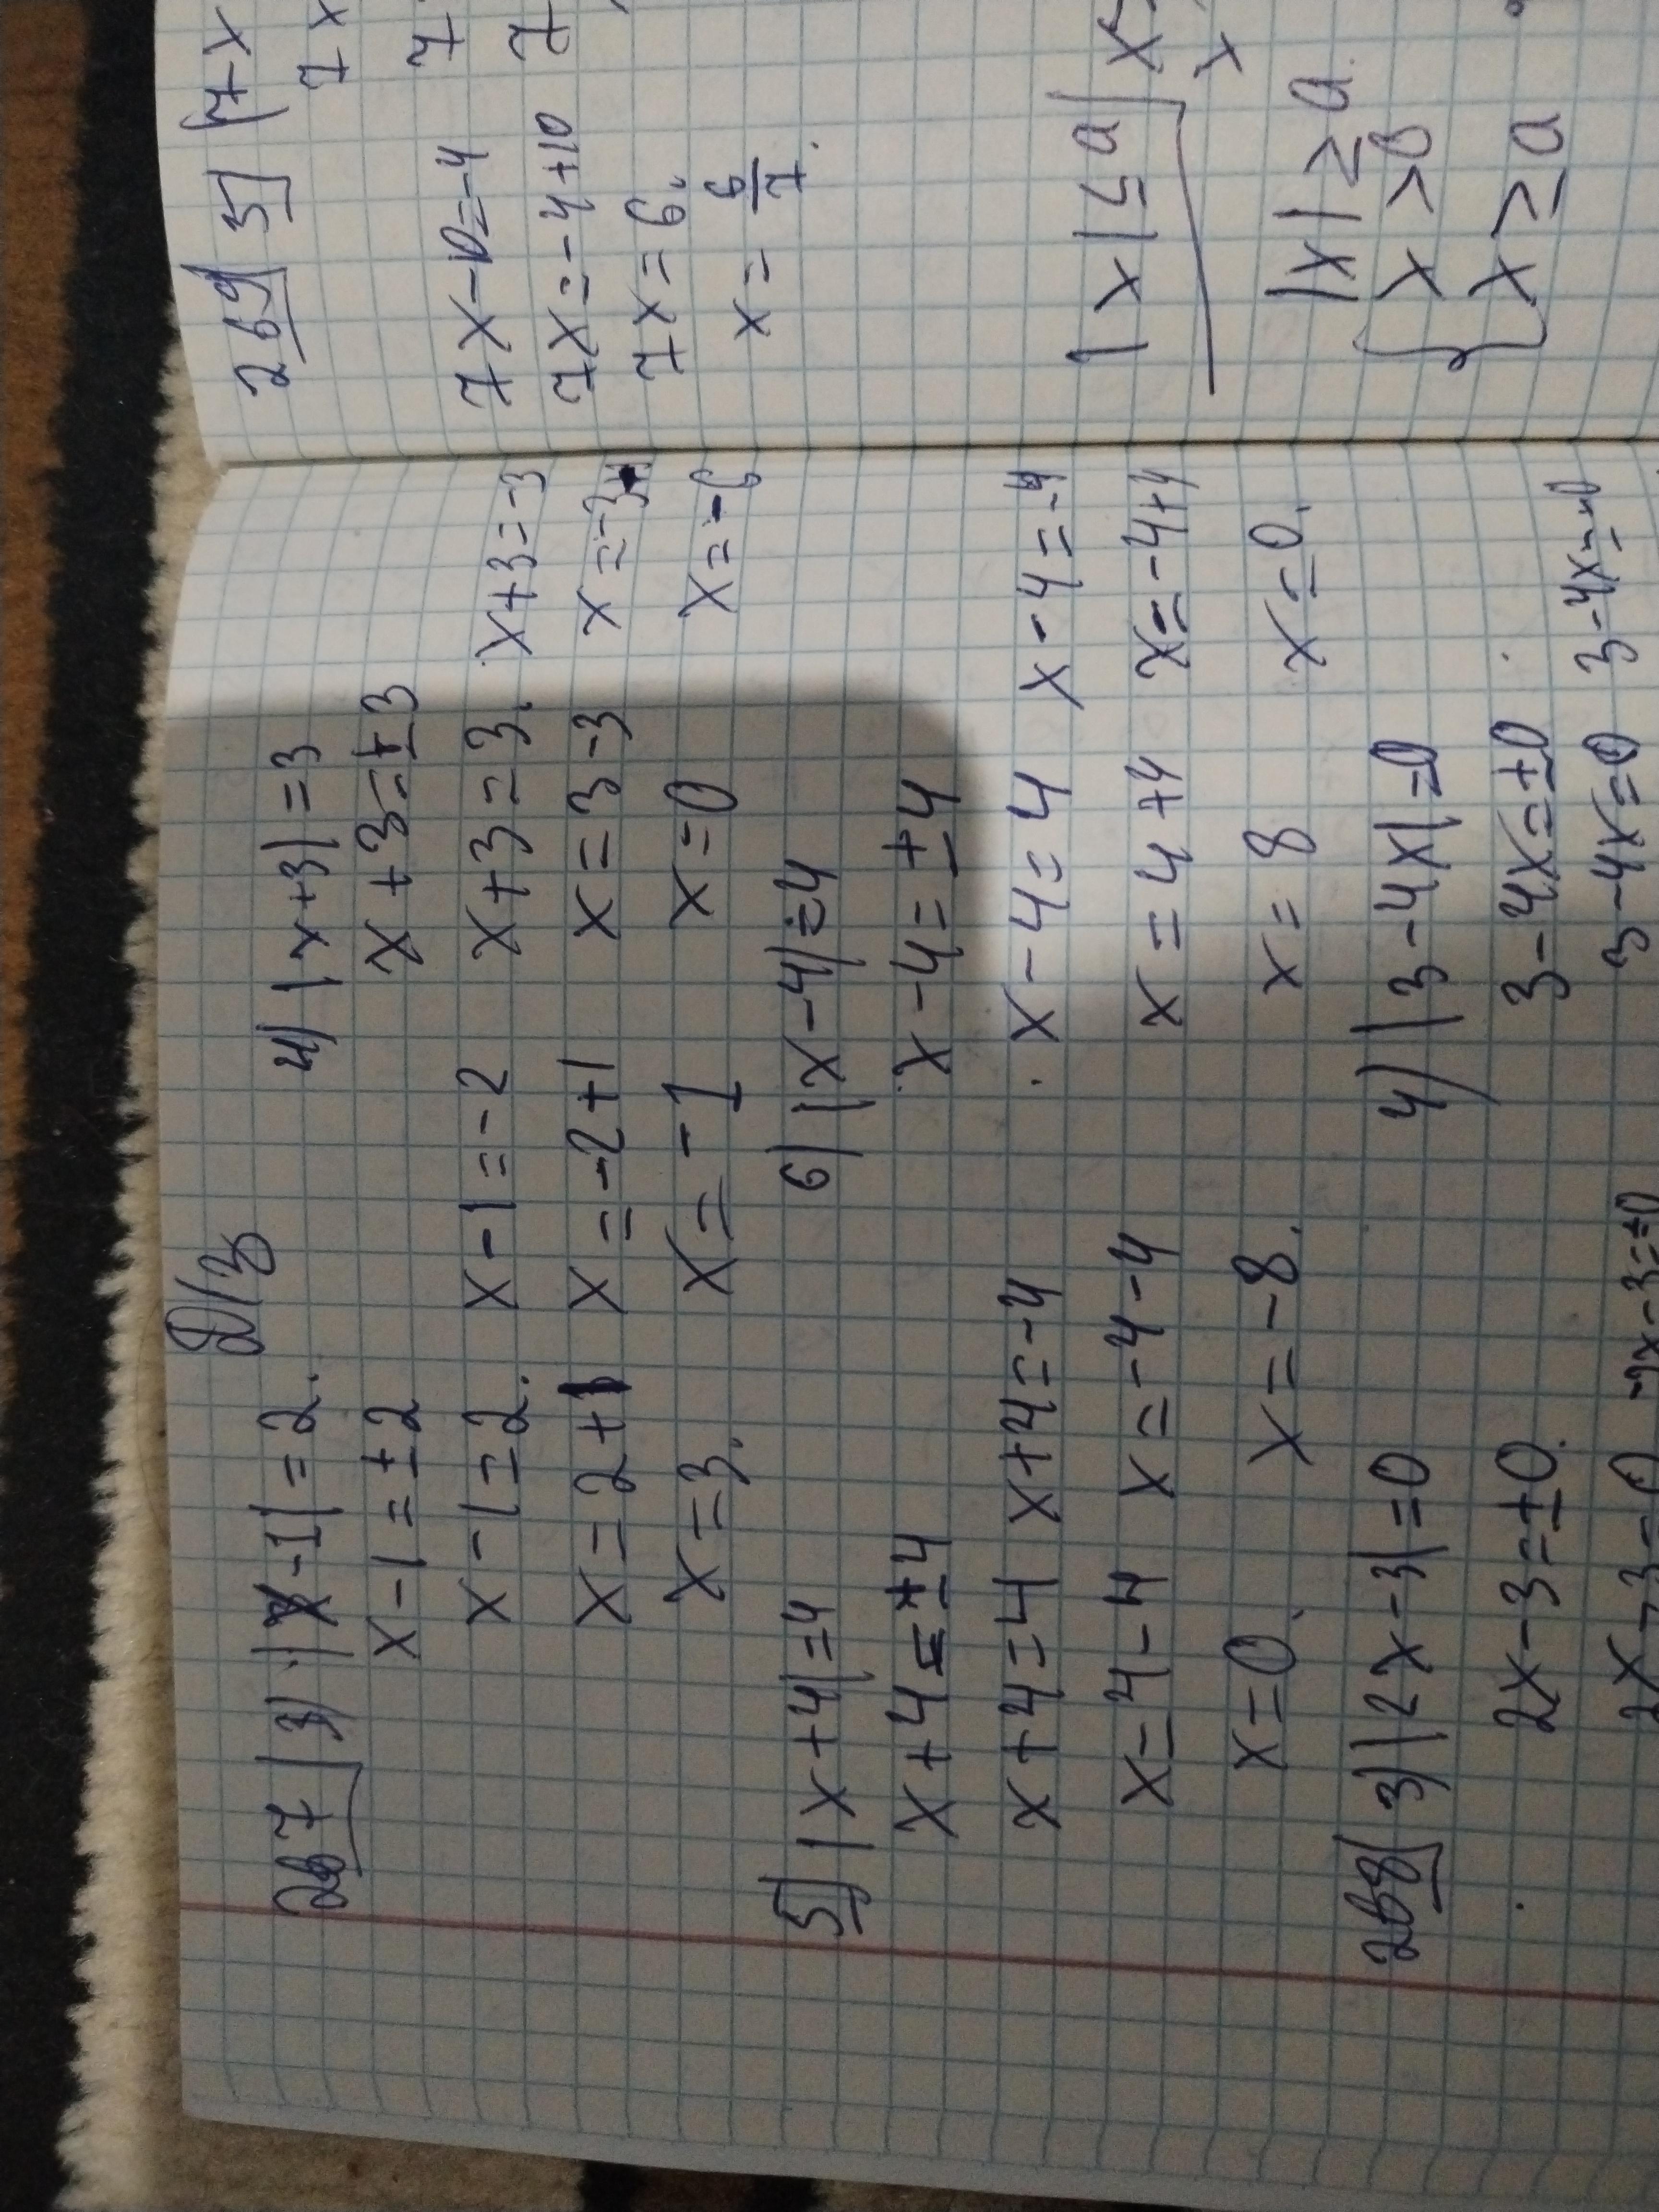 Д/З
267 3) |x-1|=2. 4) |x+3|=3
x-1=±2 x+3=±3
x-1=2. x-1=-2 x+3=3. x+3=-3
x=2+1 x=-2+1 x=3-3 x=-3
x=3. x=-1 x=0 x=-6
5) |x+4|=4 6) |x-4|=4
x+4=±4 x-4=±4
x+4=4 x+4=-4 x-4=4 x-4=-4
x=4-4 x=-4-4 x=4+4 x=-4+4
x=0. x=-8. x=8 x=0.
268 3) |2x-3|=0 4) |3-4x|=0
2x-3=±0. 3-4x=±0
2x-3=0 3-4x=0
269 5) |7x
7x
7x-10=-4
7x=-4+10
7x=6.
x=6/7.
|x|≤a x
x
|x|≥a.
{x>0
x≥a